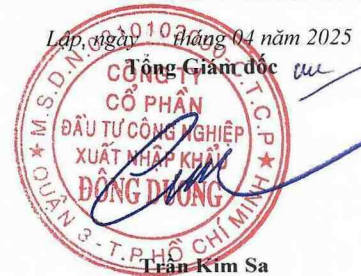 Lập, ngày tháng 04 năm 2025
Tổng Giám đốc
CÔNG TY
CỔ PHẦN
ĐẦU TƯ CÔNG NGHIỆP
XUẤT NHẬP KHẨU
ĐÔNG DƯƠNG
QUẬN 3 - T.P HỒ CHÍ MINH
Trần Kim Sa